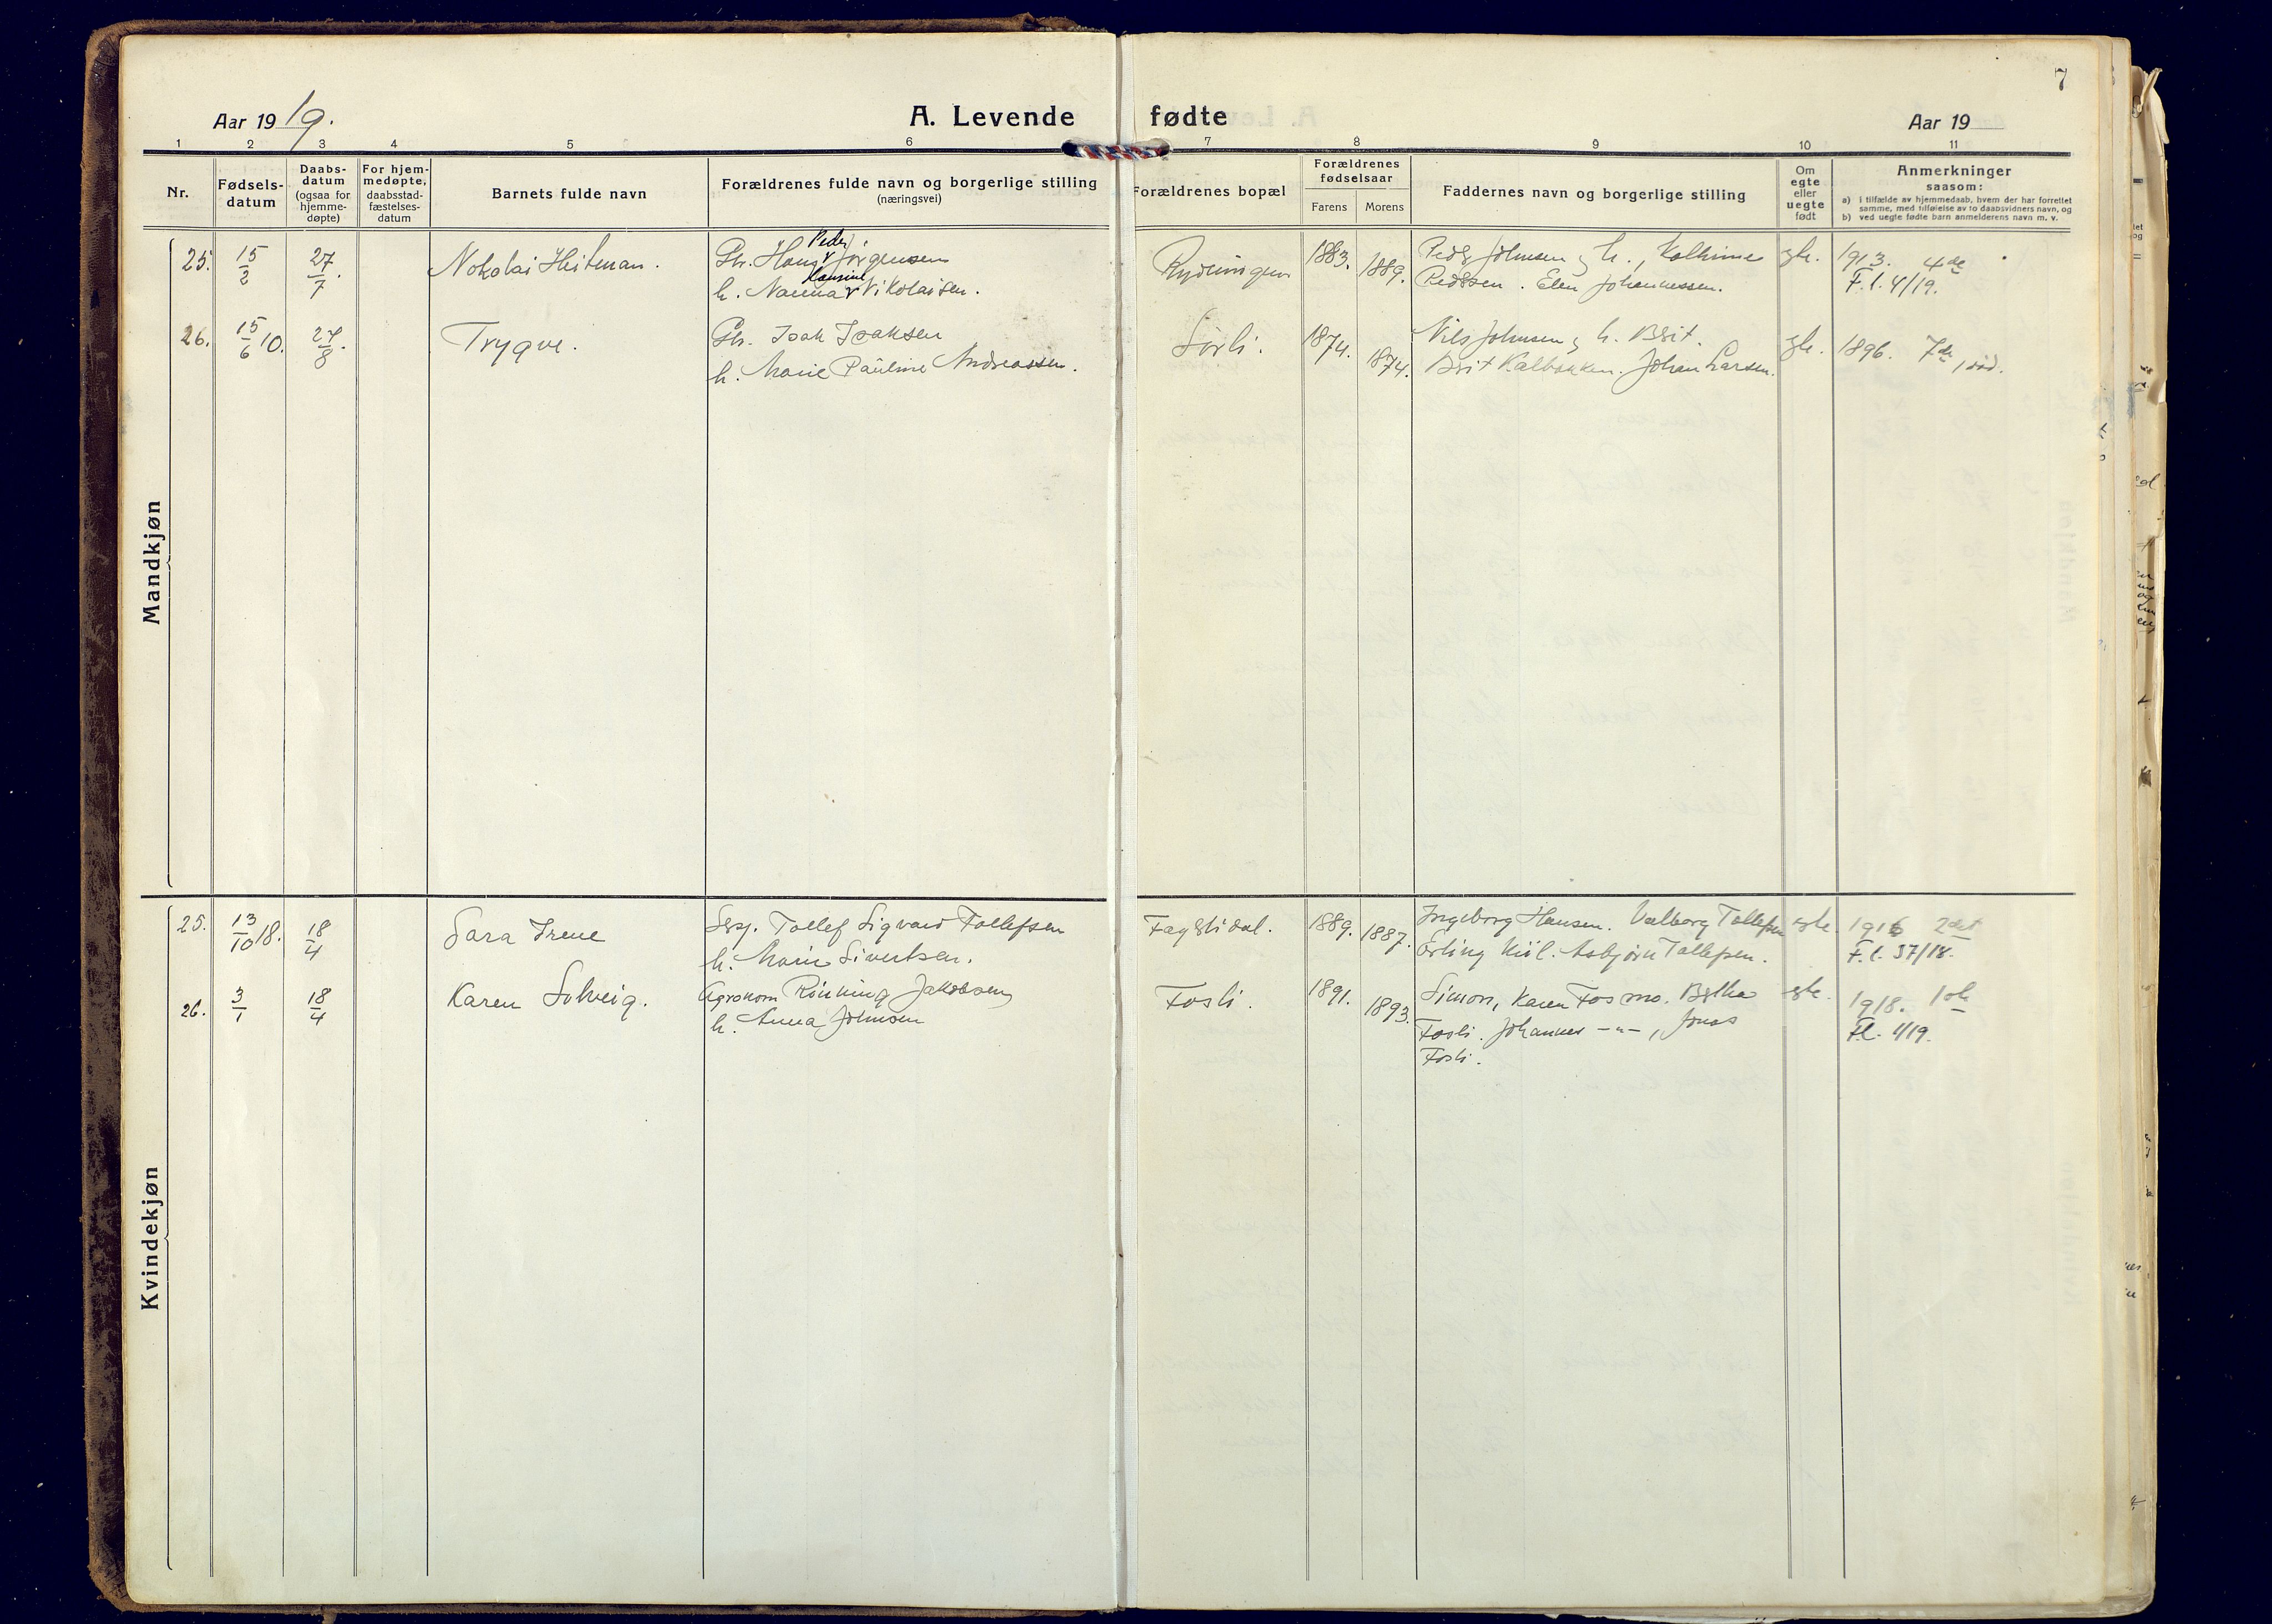 7
Aar 1919.
A. Levende fødte
Aar 19
1 2 3 4 5 6 7 8 9 10 11
Nr.
Fødsels-
datum
Daabs-
datum
(ogsaa for
hjemme-
døpte)
For hjem-
medøpte,
daabsstad-
fæstelses-
datum
Barnets fulde navn
Forældrenes fulde navn og borgerlige stilling
(næringsvei)
Forældrenes bopæl
Forældrenes
fødselsaar
Farens Morens
Faddernes navn og borgerlige stilling
Om
egte
eller
uegte
født
Anmerkninger
saasom:
a) i tilfælde av hjemmedaab, hvem der har forrettet
samme, med tilføielse av to daabsvidners navn, og
b) ved uegte fødte barn anmelderens navn m. v.
Mandkjøn
25. 15/2 27/7. Nokolai Heitman.
Gbr. Hans Peder Jørgensen
h. Nanna Hansine Nikolaisen.
1883. 1889.
Peder Johnsen og h., Kathrine
Pedersen. Elen Johannessen.
egte.
1913. 4de
F.l. 4/19.
26. 15/6 10. 27/8. Trygve.
Gbr. Isak Isaksen
h. Marie Pauline Andreassen.
Sørli. 1874. 1874.
Nils Johnsen og h. Berit.
Berit Kalbakken. Johan Larsen.
egte.
1896. 7de
Kvindekjøn
25. 13/10 18. 18/4 Sara Irene
Sersj. Tollef Sigvard Tollefsen
h. Marie Sivertsen.
Fagerlidal. 1889. 1887.
Ingeborg Hansen. Valborg Tollefsen
Erling Kiil. Asbjørn Tollefsen.
egte.
1916 2det
F.l. 37/18.
26. 3/1 18/4 Karen Solveig.
Agronom Rønning Jakobsen
h. Anna Johnsen
Fosli. 1891. 1893.
Simon, Karen Fosmo. Bertha
Fosli. Johannes -"-, Jonas
Fosli.
egte.
1918. 1ste
F.l. 1/19.